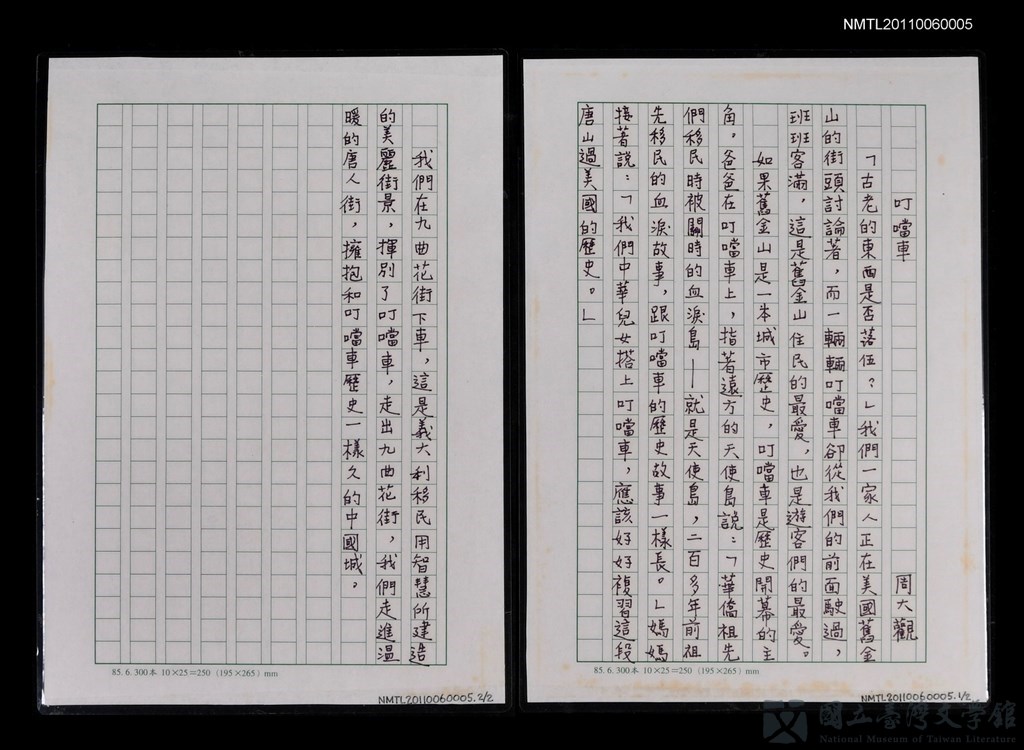 NMTL20110060005
叮噹車　周大觀
「古老的東西是否落伍？」我們一家人正在美國舊金
山的街頭討論著，而一輛輛叮噹車卻從我們的前面駛過，
班班客滿，這是舊金山住民的最愛，也是遊客們的最愛。
如果舊金山是一本城市歷史，叮噹車是歷史開幕的主
角，爸爸在叮噹車上，指著遠方的天使島說：「華僑祖先
們移民時被關時的血淚島——就是天使島，二百多年前祖
先移民的血淚故事，跟叮噹車的歷史故事一樣長。」媽媽
接著說：「我們中華兒女搭上叮噹車，應該好好複習這段
唐山過美國的歷史。」
85. 6. 300本 10×25=250 (195×265) mm
NMTL20110060005.1/2
我們在九曲花街下車，這是義大利移民用智慧所建造
的美麗街景，揮別了叮噹車，走出九曲花街，我們走進溫
暖的唐人街，擁抱和叮噹車歷史一樣久的中國城。
85. 6. 300本 10×25=250 (195×265) mm
NMTL20110060005.2/2
國立臺灣文學館
National Museum of Taiwan Literature